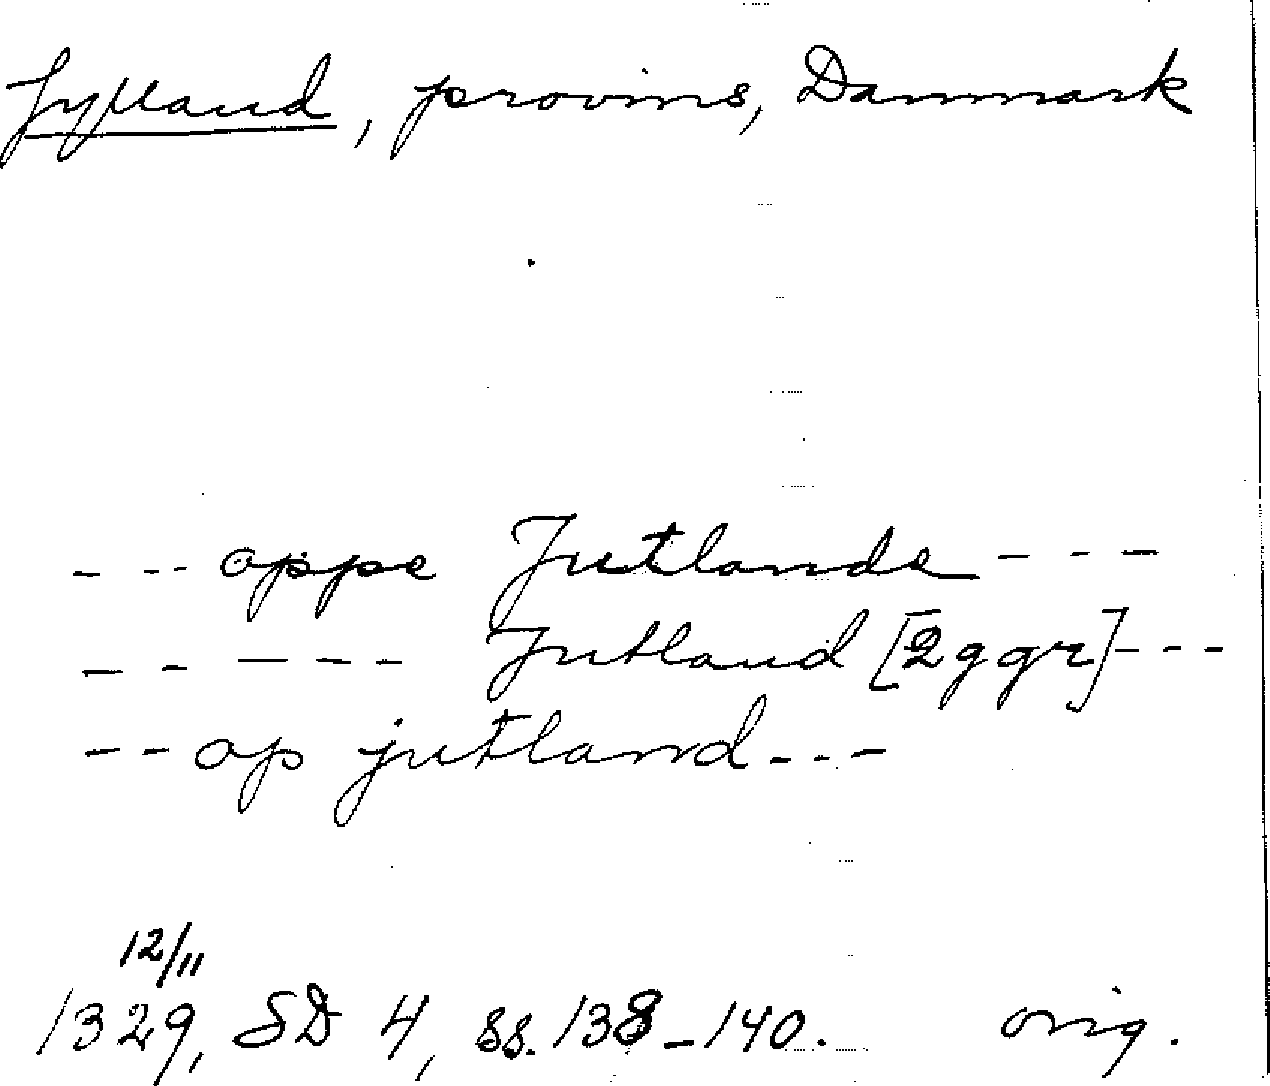 Jylland, provins, Danmark
- - - oppe Jutlande - - -
- - - - - Jutland [2 ggr] - - -
- - op jutland - - -
12/11
1329, SD 4, ss. 138-140. orig.